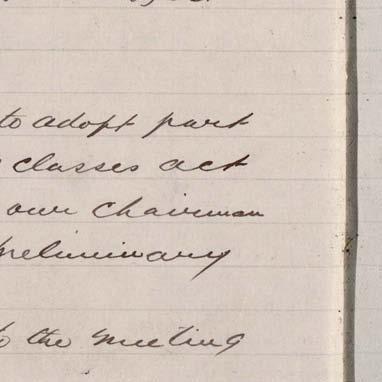 to adopt part
classes act
our chairman
preliminary
to the meeting